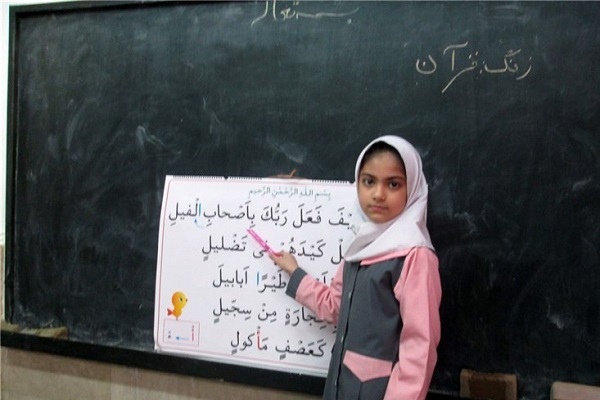 بسمه تعالی
زنگ قرآن
بِسْمِ اللهِ الرَّحْمٰنِ الرَّحيمِ
فَعَلَ رَبُّكَ بِاَصْحابِ الْفيلِ
كَيْدَهُمْ فى تَضْليلٍ
طَيْرًا اَبابيلَ
مِنْ سِجّيلٍ
كَعَصْفٍ مَأْكولٍ